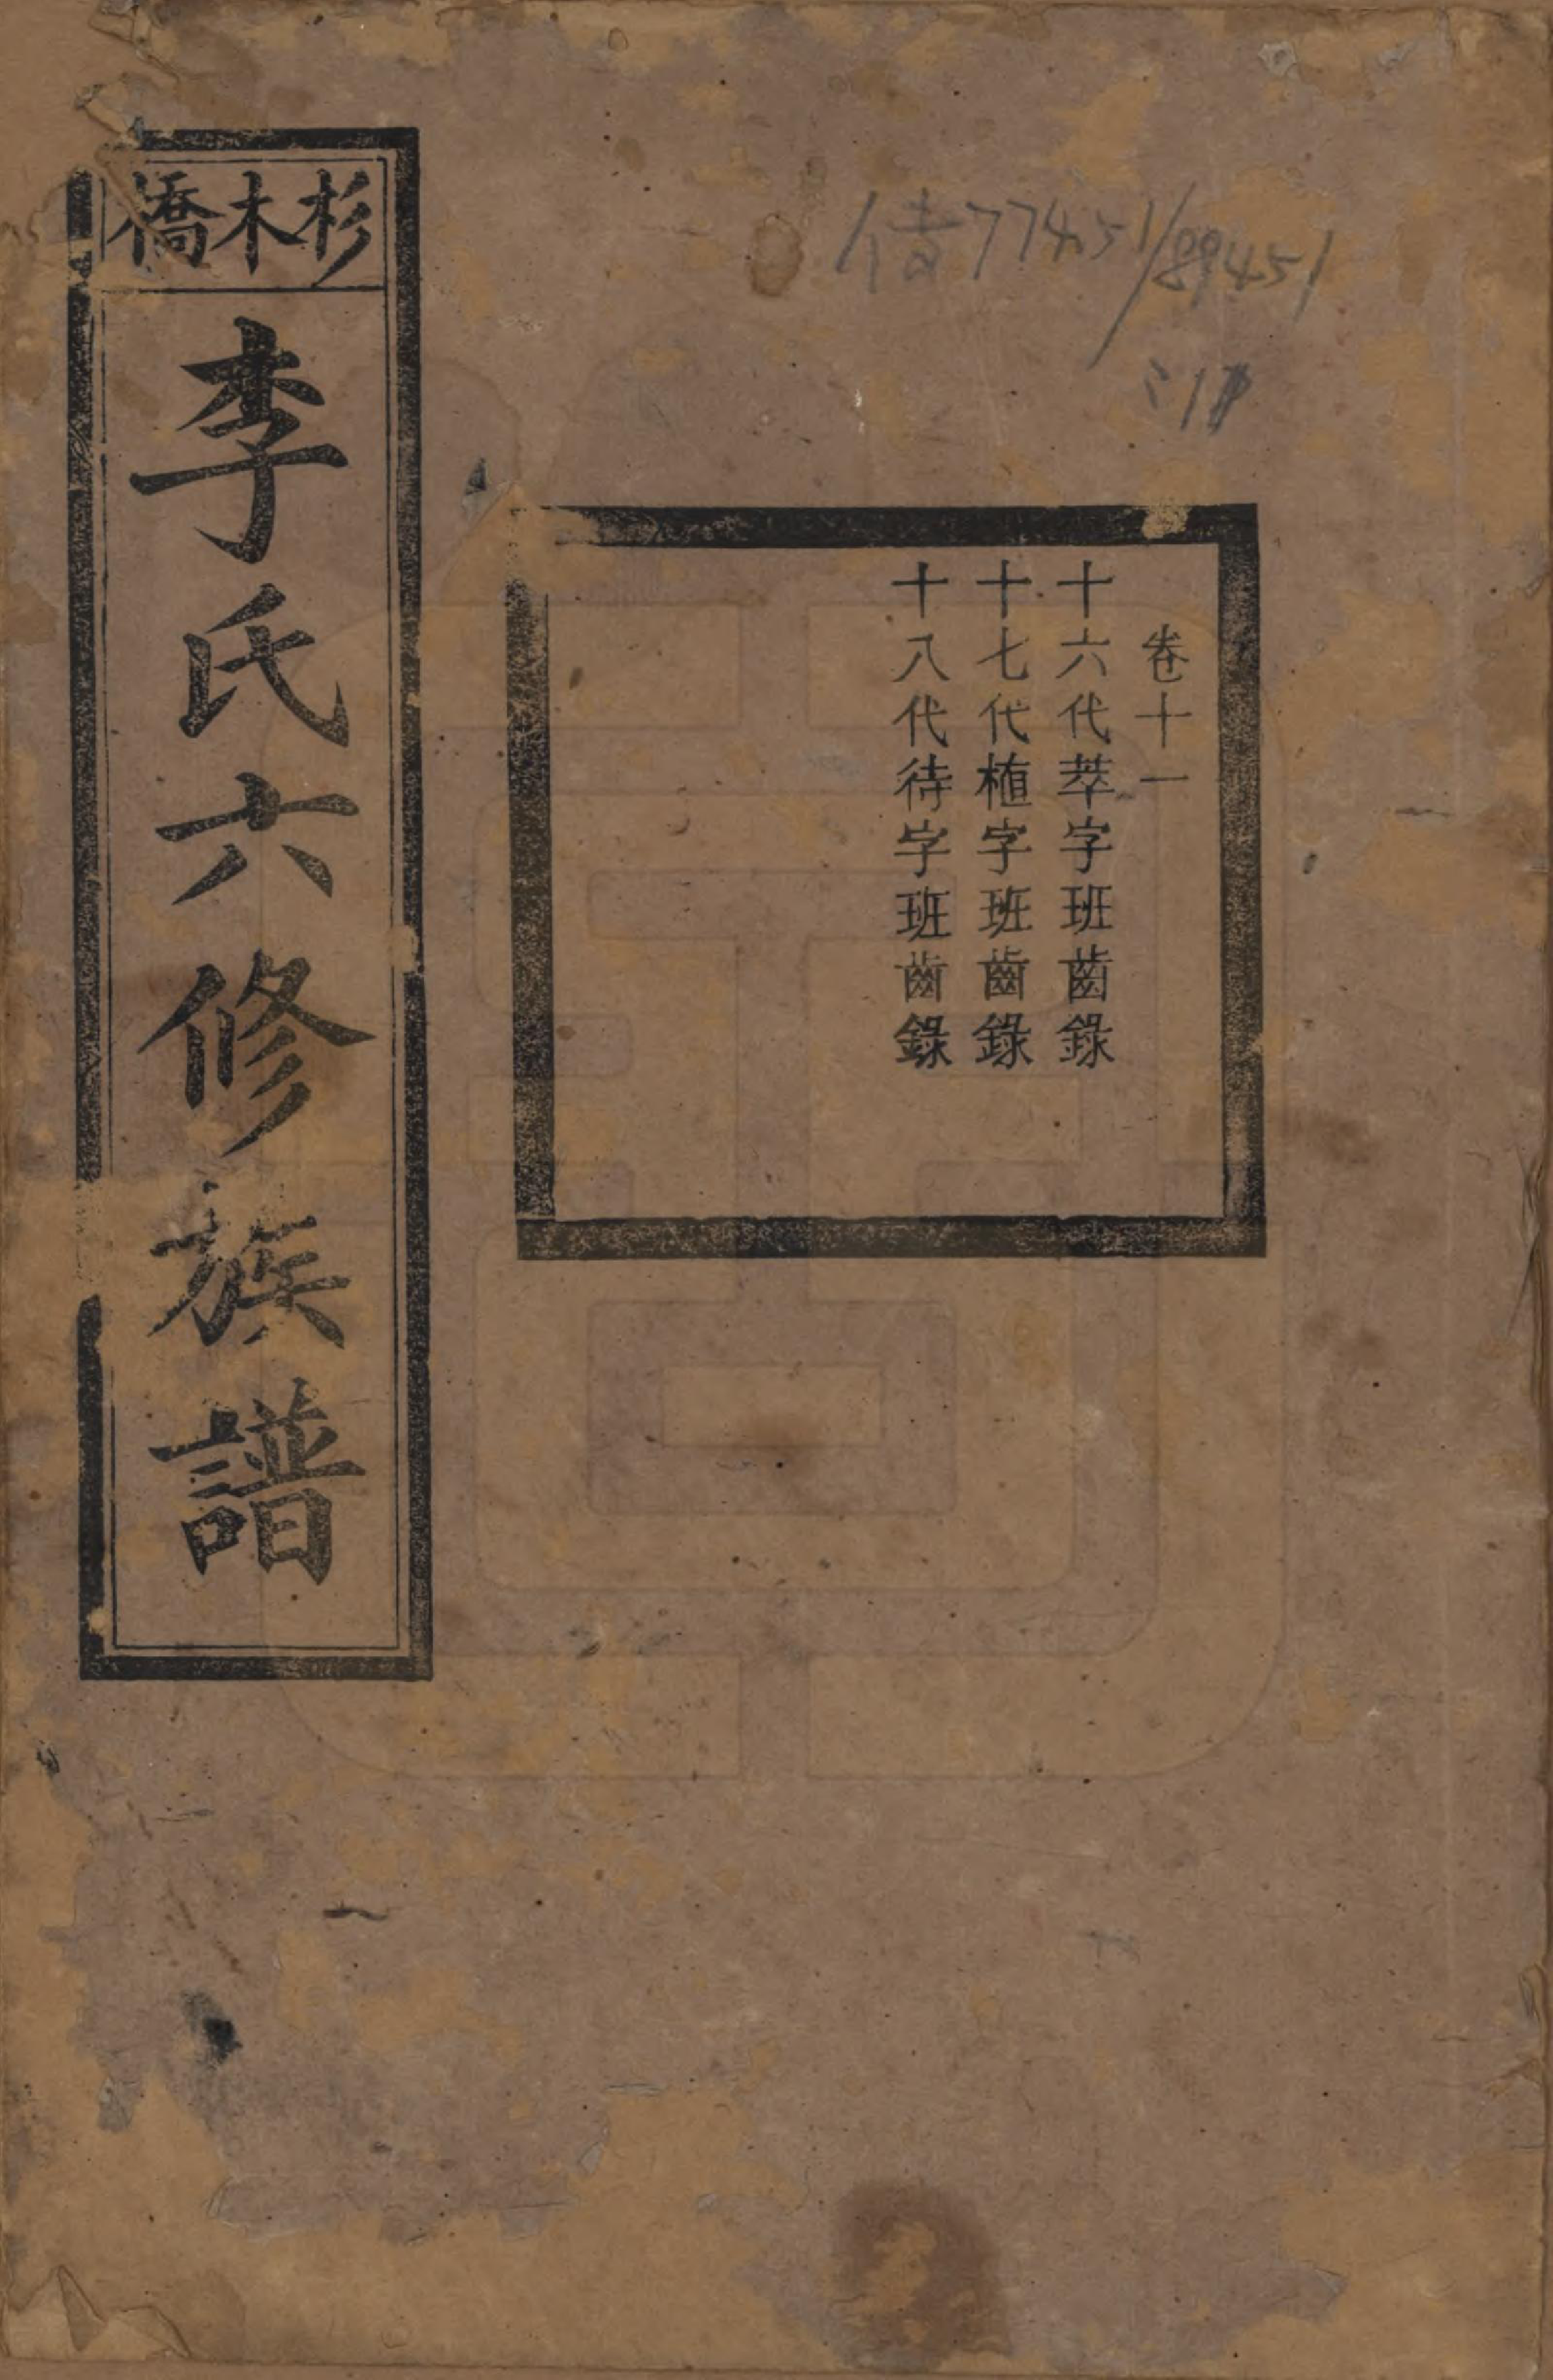 杉木橋
李氏六修族譜
卷十一
十六代萃字班齒錄
十七代植字班齒錄
十八代待字班齒錄
77451/89451